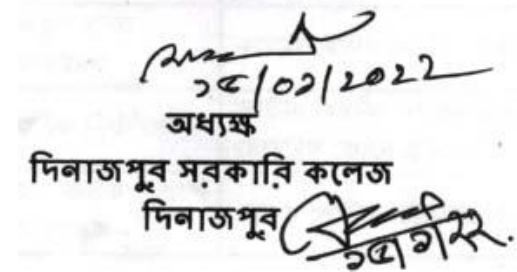 ১৫/০১/২০২২
অধ্যক্ষ
দিনাজপুর সরকারি কলেজ
দিনাজপুর
১৫/১/২২.